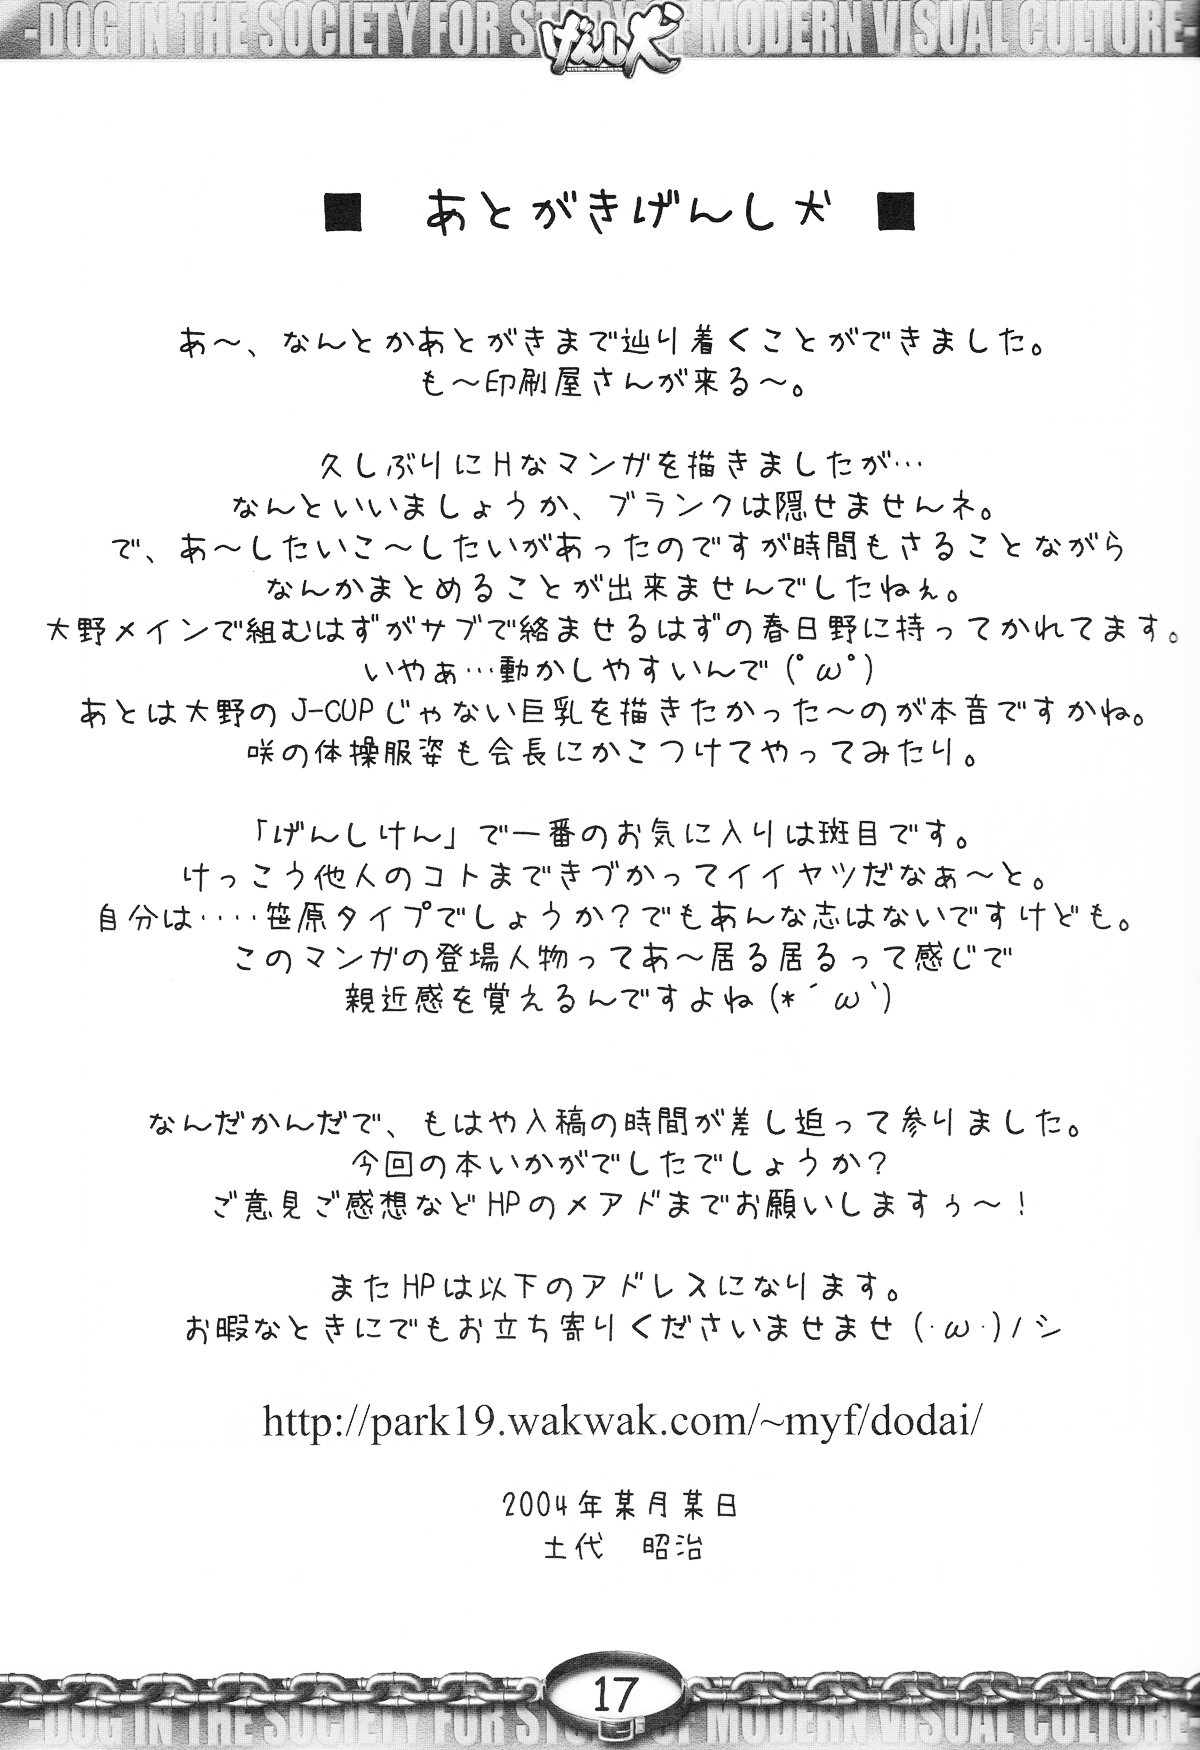 -DOG IN THE SOCIETY FOR STUDY OF MODERN VISUAL CULTURE-
げんし犬
■ あとがきげんし犬 ■
あ〜、なんとかあとがきまで辿り着くことができました。
も〜印刷屋さんが来る〜。
久しぶりにHなマンガを描きましたが…
なんといいましょうか、ブランクは隠せませんネ。
で、あ〜したいこ〜したいがあったのですが時間もさることながら
なんかまとめることが出来ませんでしたねぇ。
大野メインで組むはずがサブで絡ませるはずの春日野に持ってかれてます。
いやぁ…動かしやすいんで(ﾟωﾟ)
あとは大野のJ-CUPじゃない巨乳を描きたかった〜のが本音ですかね。
咲の体操服姿も会長にかこつけてやってみたり。
「げんしけん」で一番のお気に入りは斑目です。
けっこう他人のコトまできづかってイイヤツだなぁ〜と。
自分は‥‥笹原タイプでしょうか？でもあんな志はないですけども。
このマンガの登場人物ってあ〜居る居るって感じで
親近感を覚えるんですよね(*´ω`)
なんだかんだで、もはや入稿の時間が差し迫って参りました。
今回の本いかがでしたでしょうか？
ご意見ご感想などHPのメアドまでお願いしますぅ〜！
またHPは以下のアドレスになります。
お暇なときにでもお立ち寄りくださいませませ(･ω･)ノシ
http://park19.wakwak.com/~myf/dodai/
2004年某月某日
土代 昭治
17
-DOG IN THE SOCIETY FOR STUDY OF MODERN VISUAL CULTURE-